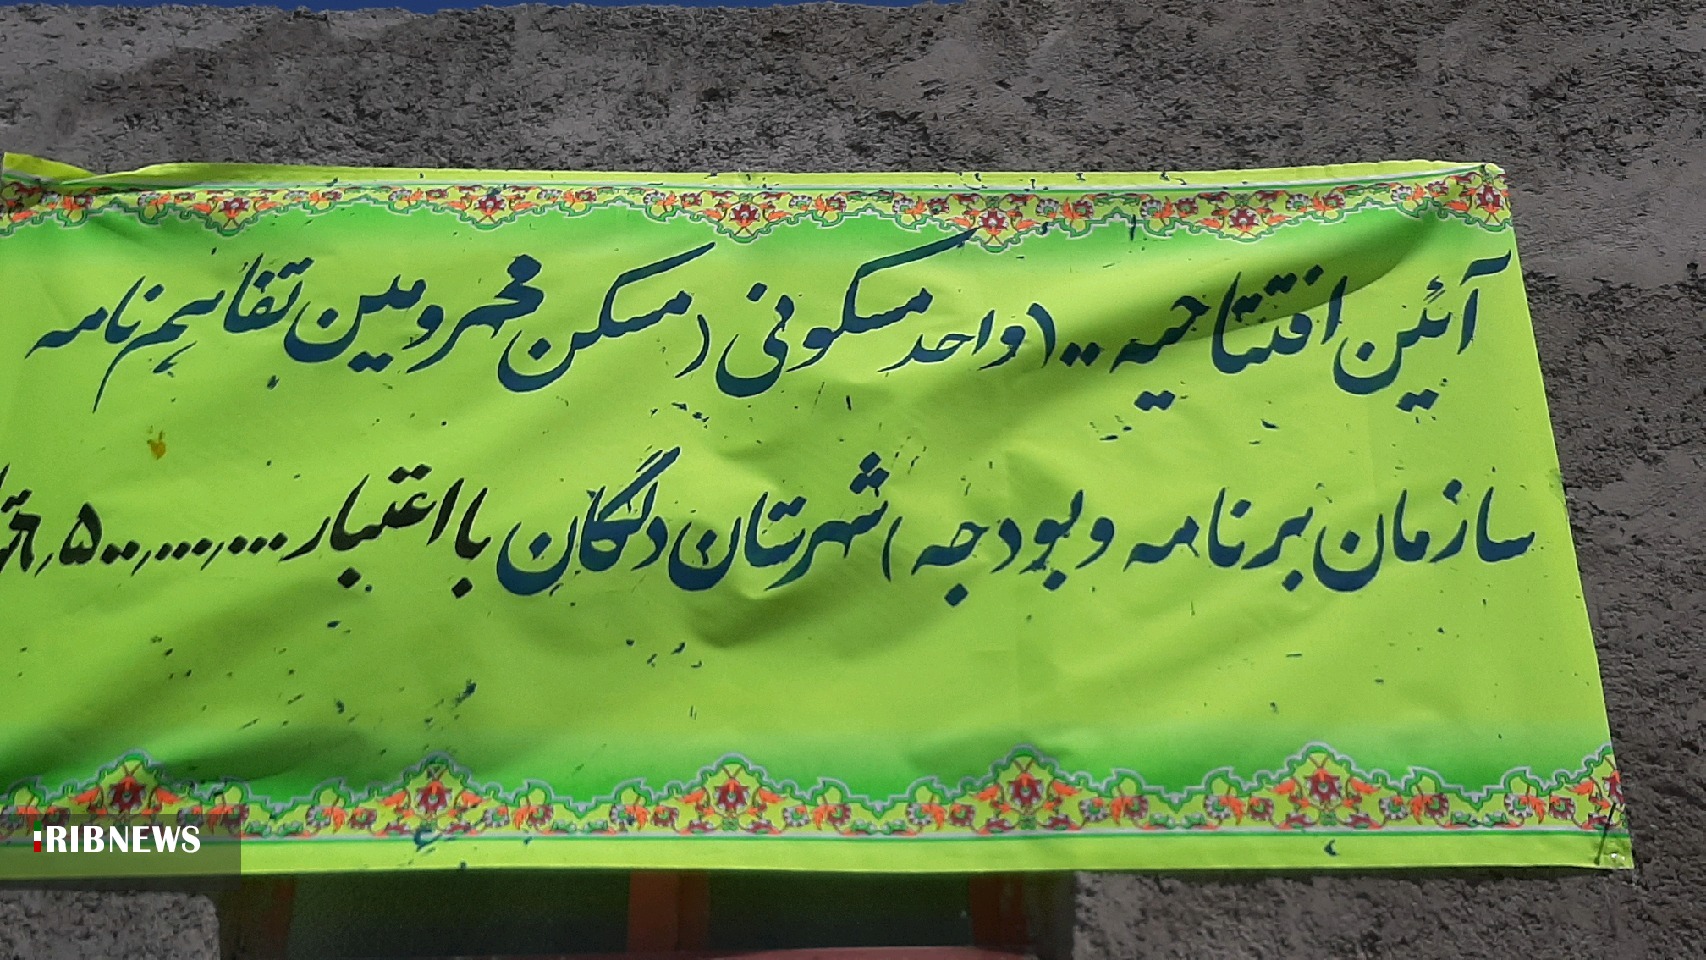 آئین افتتاحیه ۱۰۰ واحد مسکونی (مسکن محرومین تفاهم نامه
سازمان برنامه و بودجه) شهرستان دلگان با اعتبار
iRIBNEWS